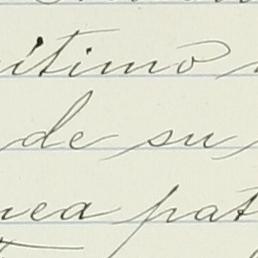 ítimo
de su
nea pat